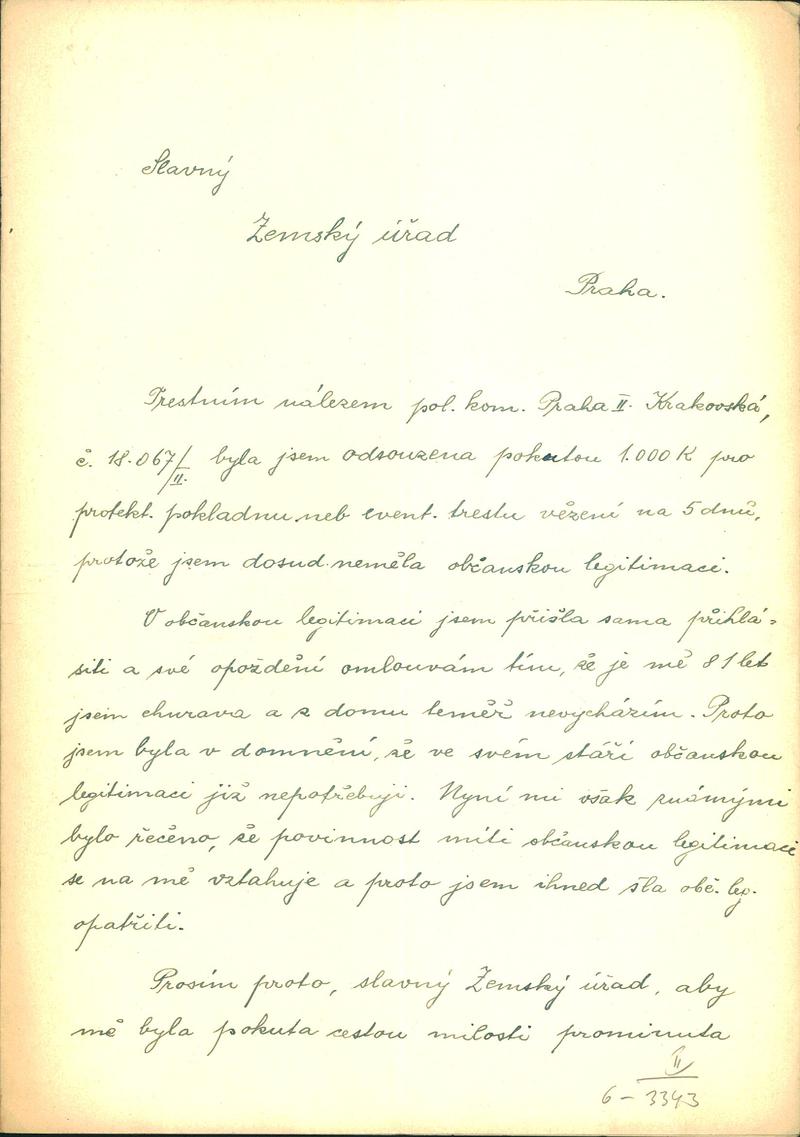 Slavný
Zemský úřad
Praha.
Trestním nálezem pol. kom. Praha II. Krakovská,
č. 18.067/II. byla jsem odsouzena pokutou 1.000 K pro
protekt. pokladnu neb event. trestu vězení na 5 dnů,
protože jsem dosud neměla občanskou legitimaci.
O občanskou legitimaci jsem přišla sama přihlá-
siti a své opoždění omlouvám tím, že je mě 81 let
jsem churava a z domu teměř nevycházím. Proto
jsem byla v domnění, že ve svém stáří občanskou
legitimaci již nepotřebuji. Nyní mi však známými
bylo řečeno, že povinnost míti občanskou legitimaci
se na mě vztahuje a proto jsem ihned šla obč. leg.
opatřiti.
Prosím proto, slavný Zemský úřad, aby
mě byla pokuta cestou milosti prominuta
II
6 - 3343